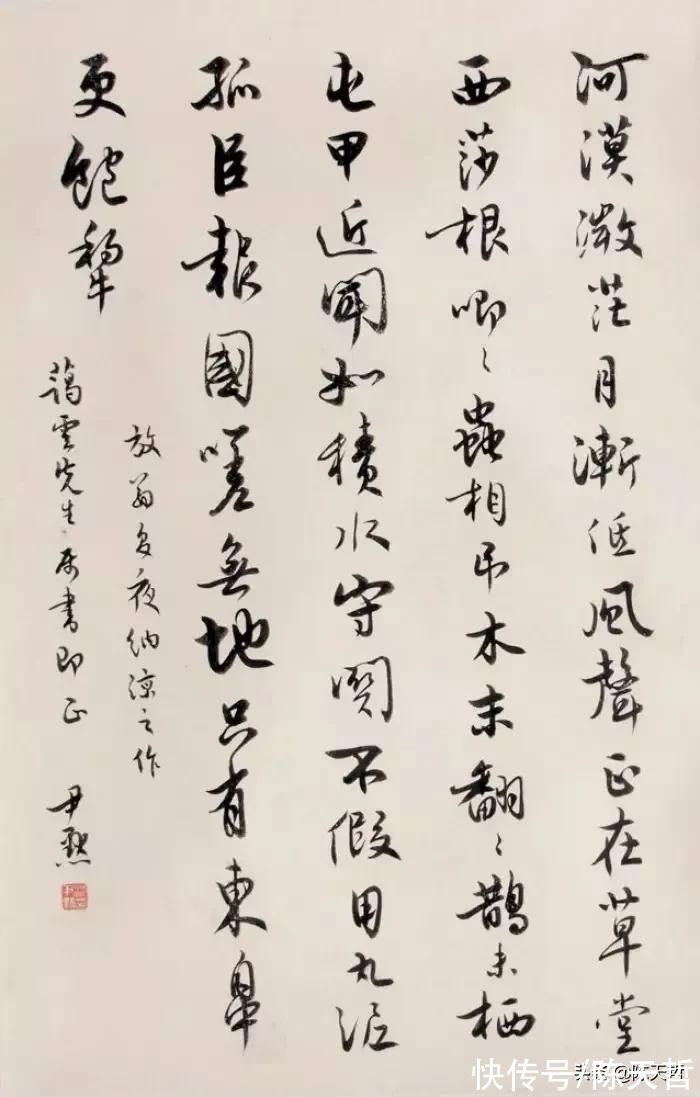 河漢微茫月漸低風聲正在草堂
西莎根唧々蟲相弔木末翻々鵲未栖
屯甲近聞如積水守關不假用丸泥
孤臣報國嗟無地只有東皋
更飽犂
放翁夕夜納涼之作
藹雲先生屬書即正
尹默
快传号/陈天哲
头条@陈天哲